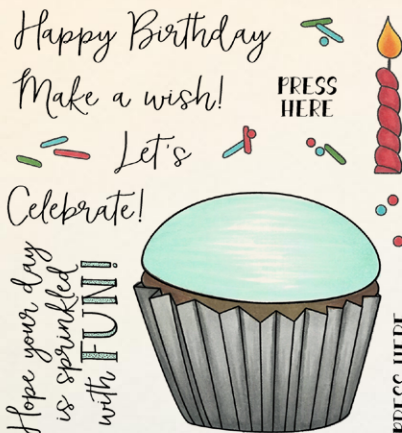 Happy Birthday
Make a wish!
PRESS
HERE
Let's
Celebrate!
Hope your day
is sprinkled
with FUN!
PRESS HERE